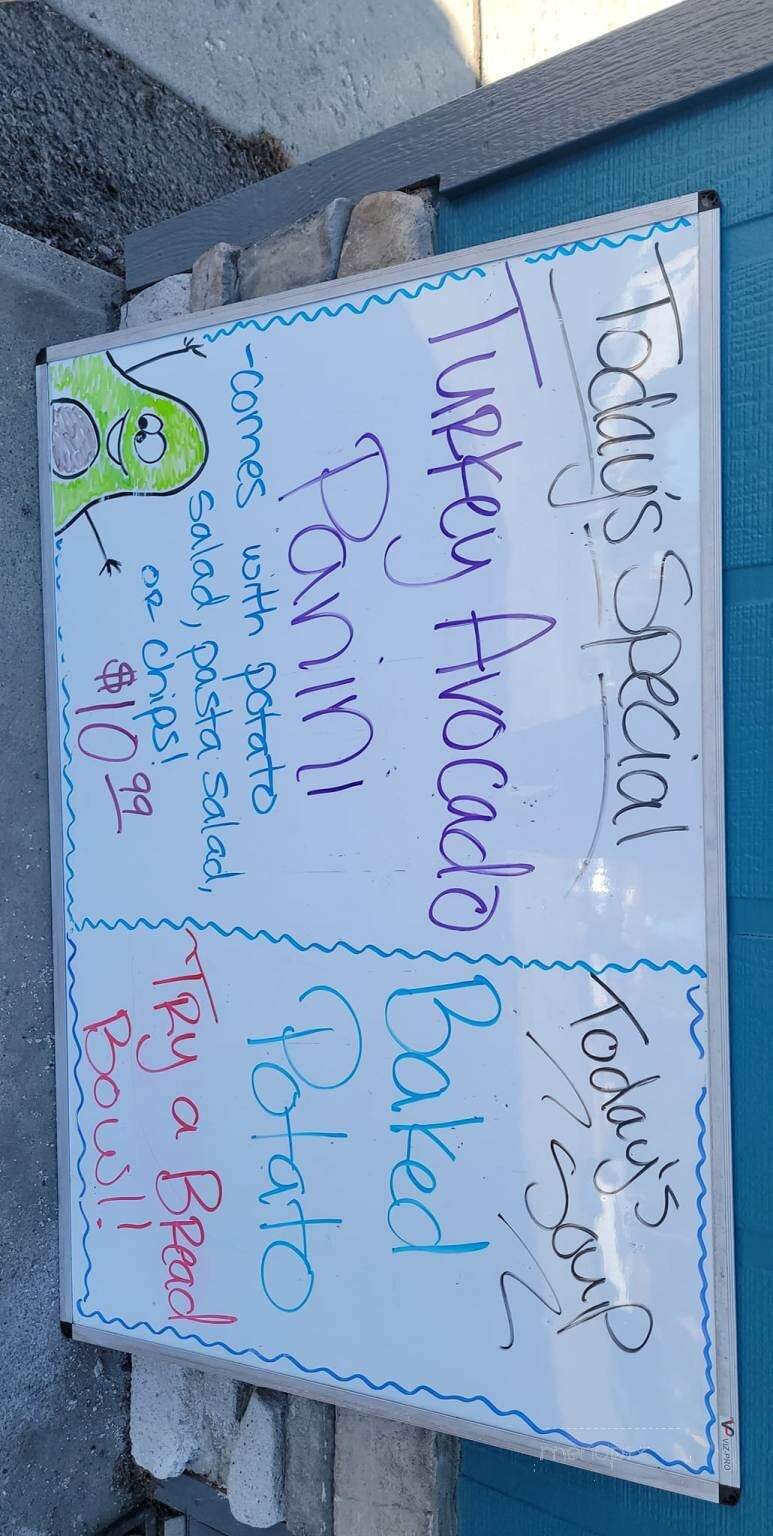 Today's Special
Turkey Avocado
Panini
-comes with potato
salad, pasta salad,
or chips!
$10.99
Today's
Soup
Baked
Potato
~Try a Bread
Bowl!
VIZ-PRO
menupix